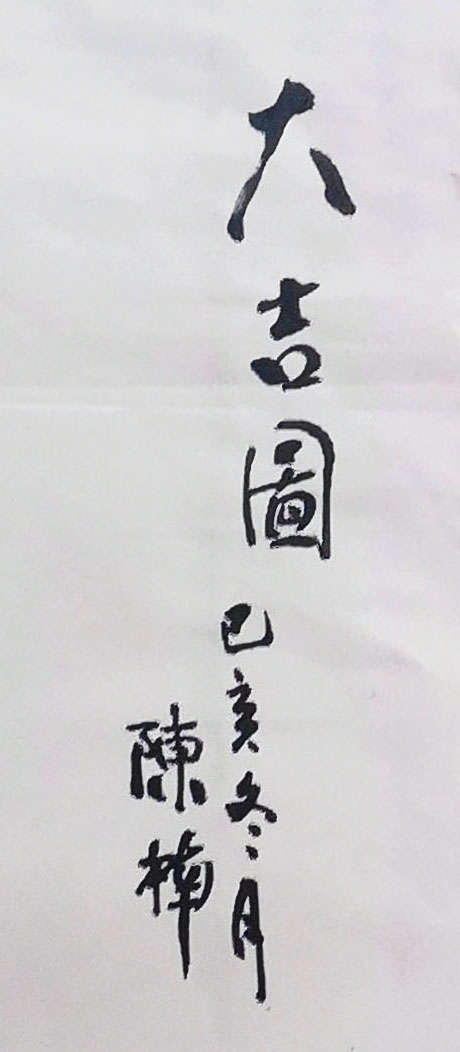 大吉圖
己亥冬月
陳楠